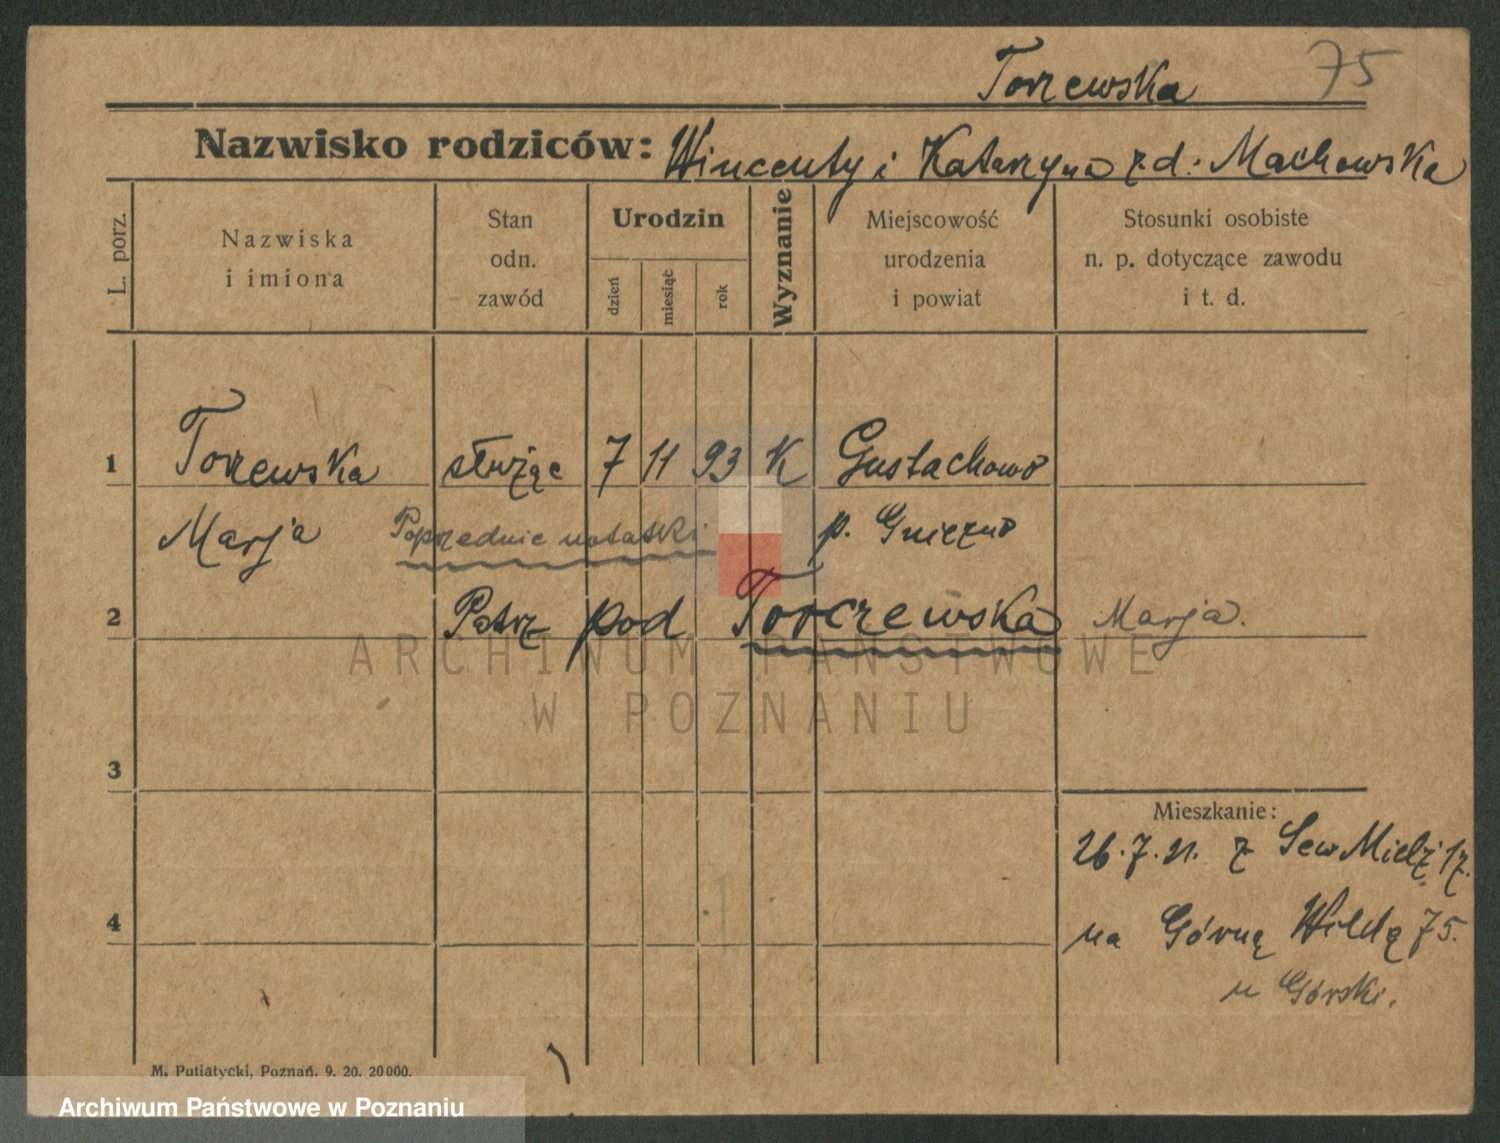 Torzewska 75
Nazwisko rodziców: Wincenty i Katarzyna zd. Machowska
L. porz.
Nazwiska
i imiona
Stan
odn.
zawód
Urodzin
dzień
miesiąc
rok
Wyznanie
Miejscowość
urodzenia
i powiat
Stosunki osobiste
n. p. dotyczące zawodu
i t. d.
1 Torzewska służąc 7 11 93 K Gustachowo
Marja Poprzednie notatki p. Gniezno
2 Patrz pod Torczewska Marja.
ARCHIWUM PAŃSTWOWE
W POZNANIU
3
Mieszkanie:
26.7.21. z Sew Mielż 17.
4 na Górną Wildę 75.
u Górski.
M. Putiatycki, Poznań. 9. 20. 20000.
Archiwum Państwowe w Poznaniu